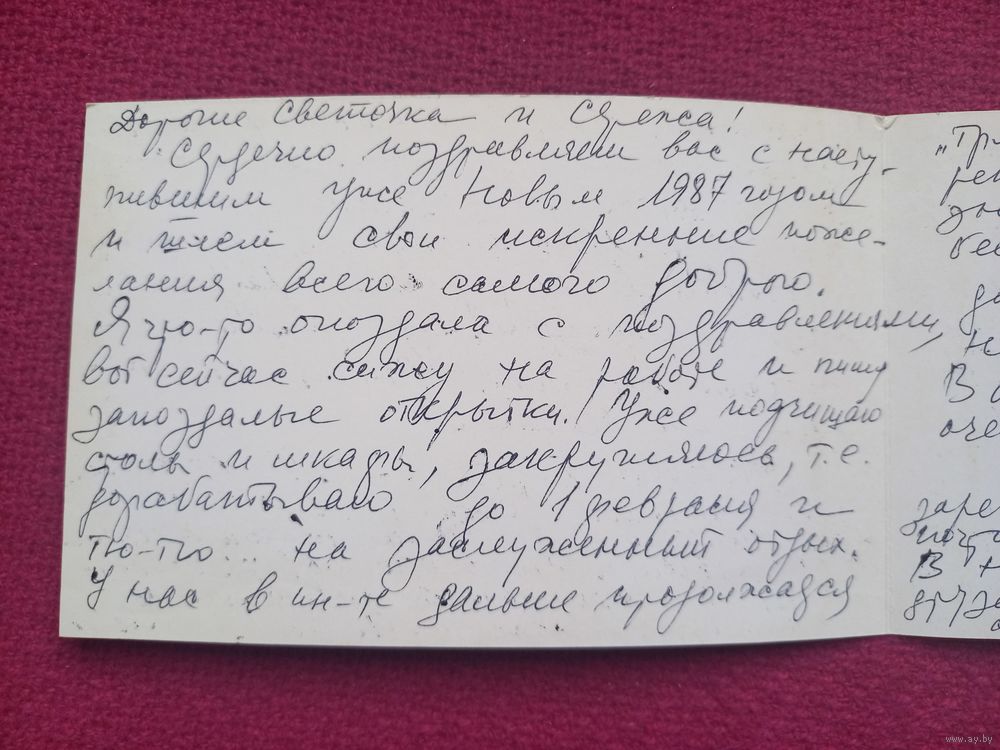 Дорогие Светочка и Сережа!
Сердечно поздравляем вас с насту-
пившим уже Новым 1987 годом
и шлем свои искренние поже-
лания всего самого доброго.
Я что-то опоздала с поздравлениями,
вот сейчас сижу на работе и пишу
запоздалые открытки. Уже подчищаю
столы и шкафы, закругляюсь, т.е.
дорабатываю до 1 февраля и
тю-тю... на заслуженный отдых.
У нас в ин-те дальше продолжается
"Пр
рек
зн
бес
да
н
В
оче
заре
почт
В н
www.ay.by